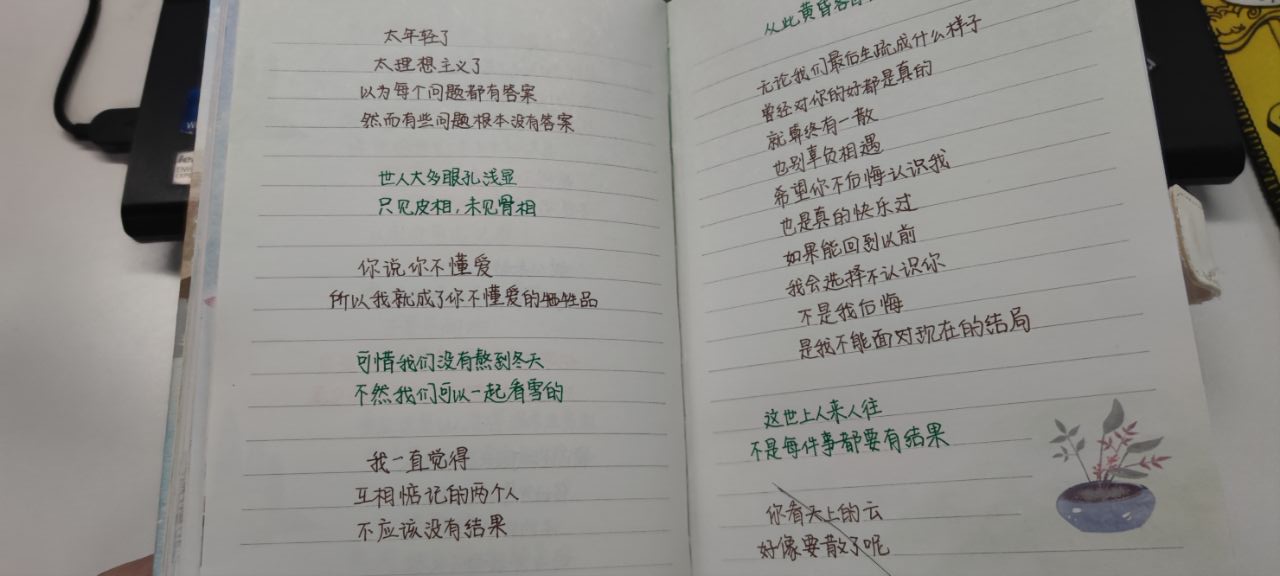 太年轻了
太理想主义了
以为每个问题都有答案
然而有些问题根本没有答案
世人大多眼孔浅显
只见皮相，未见骨相
你说你不懂爱
所以我就成了你不懂爱的牺牲品
可惜我们没有熬到冬天
不然我们可以一起看雪的
我一直觉得
互相惦记的两个人
不应该没有结果
从此黄昏各自
无论我们最后生疏成什么样子
曾经对你的好都是真的
就算终有一散
也别辜负相遇
希望你不后悔认识我
也是真的快乐过
如果能回到以前
我会选择不认识你
不是我后悔
是我不能面对现在的结局
这世上人来人往
不是每件事都要有结果
你看天上的云
好像要散了呢